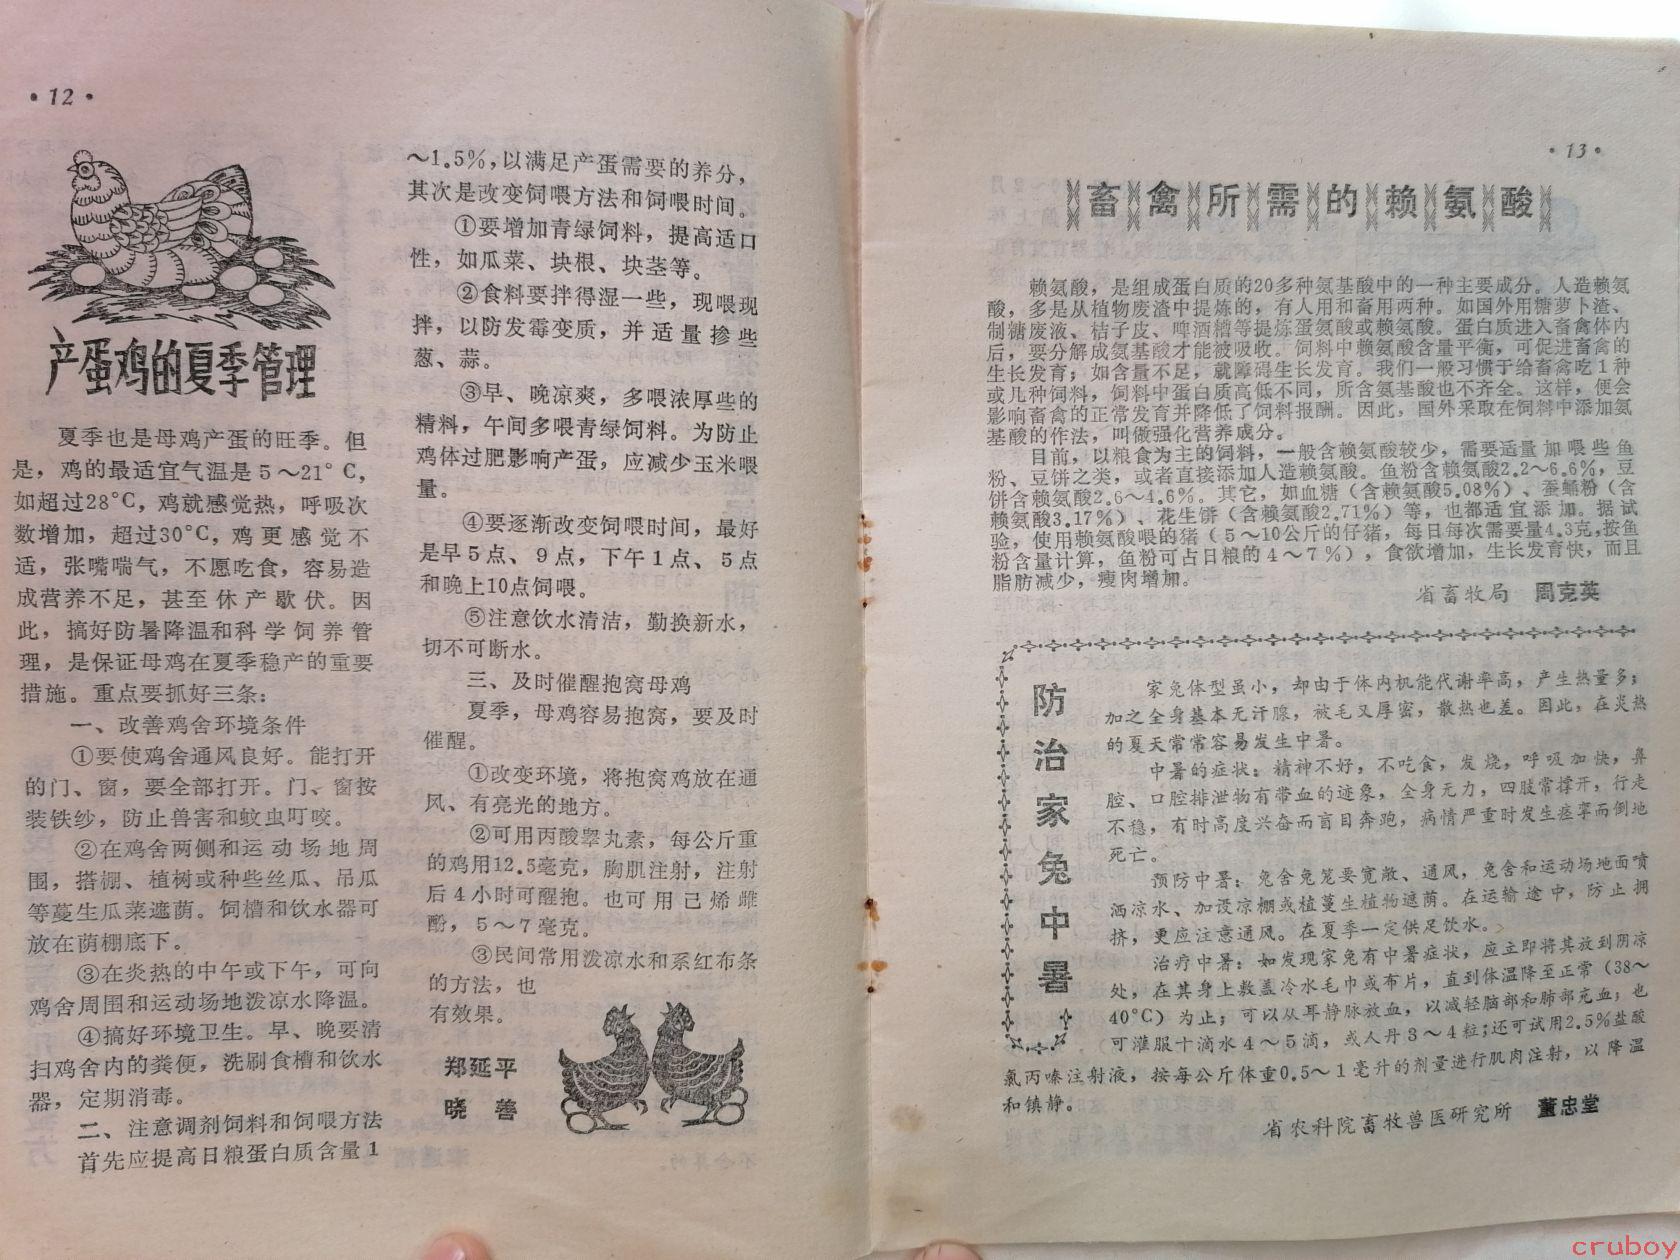 ·12·
产蛋鸡的夏季管理
夏季也是母鸡产蛋的旺季。但
是，鸡的最适宜气温是5～21°C，
如超过28°C，鸡就感觉热，呼吸次
数增加，超过30°C，鸡更感觉不
适，张嘴喘气，不愿吃食，容易造
成营养不足，甚至休产歇伏。因
此，搞好防暑降温和科学饲养管
理，是保证母鸡在夏季稳产的重要
措施。重点要抓好三条：
一、改善鸡舍环境条件
①要使鸡舍通风良好。能打开
的门、窗，要全部打开。门、窗按
装铁纱，防止兽害和蚊虫叮咬。
②在鸡舍两侧和运动场地周
围，搭棚、植树或种些丝瓜、吊瓜
等蔓生瓜菜遮荫。饲槽和饮水器可
放在荫棚底下。
③在炎热的中午或下午，可向
鸡舍周围和运动场地泼凉水降温。
④搞好环境卫生。早、晚要清
扫鸡舍内的粪便，洗刷食槽和饮水
器，定期消毒。
二、注意调剂饲料和饲喂方法
首先应提高日粮蛋白质含量1
～1.5%，以满足产蛋需要的养分，
其次是改变饲喂方法和饲喂时间。
①要增加青绿饲料，提高适口
性，如瓜菜、块根、块茎等。
②食料要拌得湿一些，现喂现
拌，以防发霉变质，并适量掺些
葱、蒜。
③早、晚凉爽，多喂浓厚些的
精料，午间多喂青绿饲料。为防止
鸡体过肥影响产蛋，应减少玉米喂
量。
④要逐渐改变饲喂时间，最好
是早5点、9点，下午1点、5点
和晚上10点饲喂。
⑤注意饮水清洁，勤换新水，
切不可断水。
三、及时催醒抱窝母鸡
夏季，母鸡容易抱窝，要及时
催醒。
①改变环境，将抱窝鸡放在通
风、有亮光的地方。
②可用丙酸睾丸素，每公斤重
的鸡用12.5毫克，胸肌注射，注射
后4小时可醒抱。也可用己烯雌
酚，5～7毫克。
③民间常用泼凉水和系红布条
的方法，也
有效果。
郑延平
晓 善
·13·
畜禽所需的赖氨酸
赖氨酸，是组成蛋白质的20多种氨基酸中的一种主要成分。人造赖氨
酸，多是从植物废渣中提炼的，有人用和畜用两种。如国外用糖萝卜渣、
制糖废液、桔子皮、啤酒糟等提炼蛋氨酸或赖氨酸。蛋白质进入畜禽体内
后，要分解成氨基酸才能被吸收。饲料中赖氨酸含量平衡，可促进畜禽的
生长发育；如含量不足，就障碍生长发育。我们一般习惯于给畜禽吃1种
或几种饲料，饲料中蛋白质高低不同，所含氨基酸也不齐全。这样，便会
影响畜禽的正常发育并降低了饲料报酬。因此，国外采取在饲料中添加氨
基酸的作法，叫做强化营养成分。
目前，以粮食为主的饲料，一般含赖氨酸较少，需要适量加喂些鱼
粉、豆饼之类，或者直接添加人造赖氨酸。鱼粉含赖氨酸2.2～6.6%，豆
饼含赖氨酸2.6～4.6%。其它，如血糖（含赖氨酸5.08%）、蚕蛹粉（含
赖氨酸3.17%）、花生饼（含赖氨酸2.71%）等，也都适宜添加。据试
验，使用赖氨酸喂的猪（5～10公斤的仔猪，每日每次需要量4.3克，按鱼
粉含量计算，鱼粉可占日粮的4～7%），食欲增加，生长发育快，而且
脂肪减少，瘦肉增加。
省畜牧局 周克英
防治家兔中暑
家兔体型虽小，却由于体内机能代谢率高，产生热量多；
加之全身基本无汗腺，被毛又厚密，散热也差。因此，在炎热
的夏天常常容易发生中暑。
中暑的症状：精神不好，不吃食，发烧，呼吸加快，鼻
腔、口腔排泄物有带血的迹象，全身无力，四肢常撑开，行走
不稳，有时高度兴奋而盲目奔跑，病情严重时发生痉挛而倒地
死亡。
预防中暑：兔舍兔笼要宽敞、通风，兔舍和运动场地面喷
洒凉水、加设凉棚或植蔓生植物遮荫。在运输途中，防止拥
挤，更应注意通风。在夏季一定供足饮水。
治疗中暑：如发现家兔有中暑症状，应立即将其放到阴凉
处，在其身上敷盖冷水毛巾或布片，直到体温降至正常（38～
40°C）为止；可以从耳静脉放血，以减轻脑部和肺部充血；也
可灌服十滴水4～5滴，或人丹3～4粒；还可试用2.5%盐酸
氯丙嗪注射液，按每公斤体重0.5～1毫升的剂量进行肌肉注射，以降温
和镇静。
省农科院畜牧兽医研究所 董忠堂
cruboy